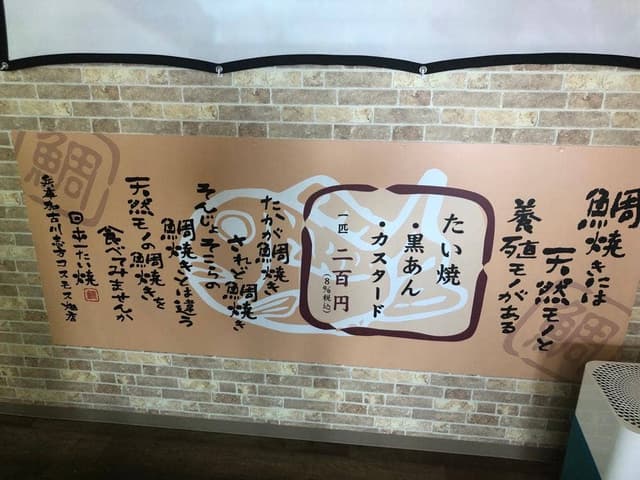 鯛焼きには
天然モノと
養殖モノがある
たい焼
・黒あん
・カスタード
一匹 二百円
(8%税込)
たかが鯛焼き
されど鯛焼き
そんじょそこらの
鯛焼きとは違う
天然モノの鯛焼きを
食べてみませんか
日本一たい焼
鯛
鯛
鯛